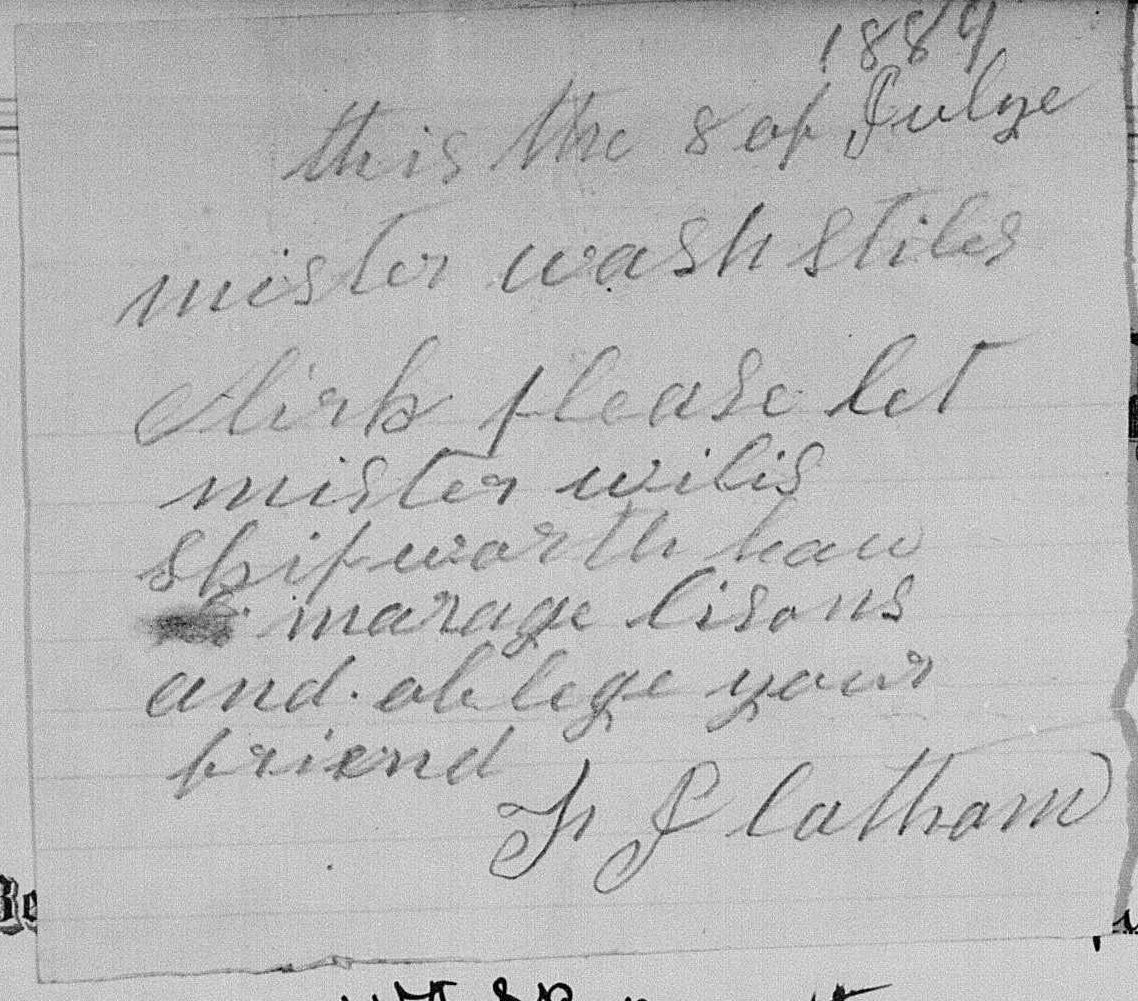 1889
this the 8 of Julye
mister wash stiles
Clirk please let
mister wilis
Skipworth hav
marage lisons
and. oblege your
friend
J latham
Be